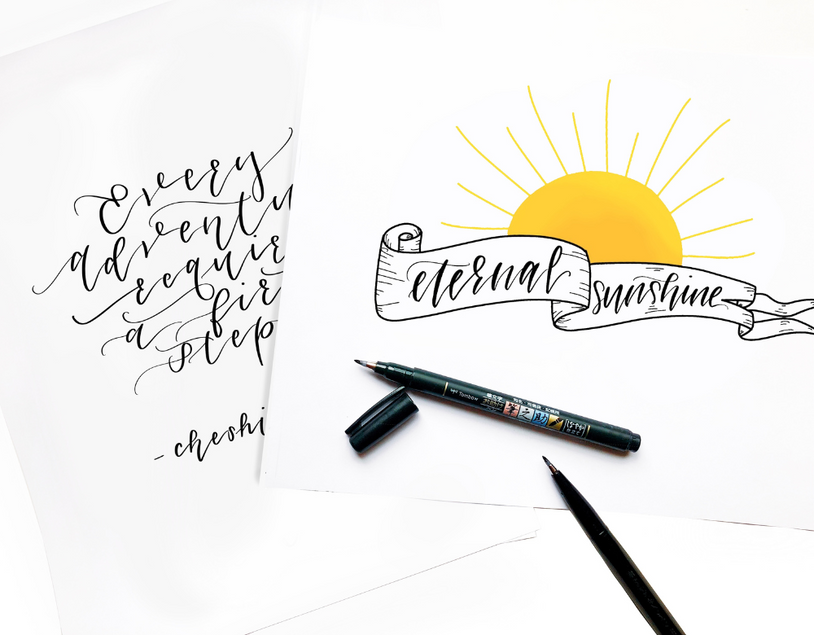 Every
adventu
requir
a fir
step
- cheshi
eternal
sunshine
Tombow
筆之助